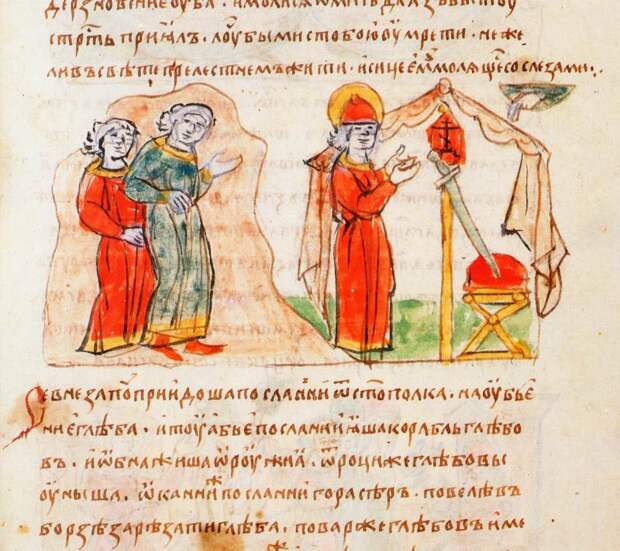 дерзновение оу ба · и молисѧ ѡ мнѣ да азъ бы тоу
стрⷭть приꙗлъ · лоу бы ми с тобою оумрети · неже
ли въ свѣте прелестнемъ жити · и сице емꙋ молѧщесѧ со слезами ·
се внезапоу приидоша посланнии ѿ стополка · на оубье
ние глѣба · и тоу абье посланнии ꙗша корабль глѣбо
въ · и ѡбнажиша ѡроужиꙗ · ѡроци же глѣбовы
оуныша · ѡканниⷤ посланнии горасѣръ · повелѣ въ
борзѣ зарѣзати глѣба · поваръ же глѣбовъ име